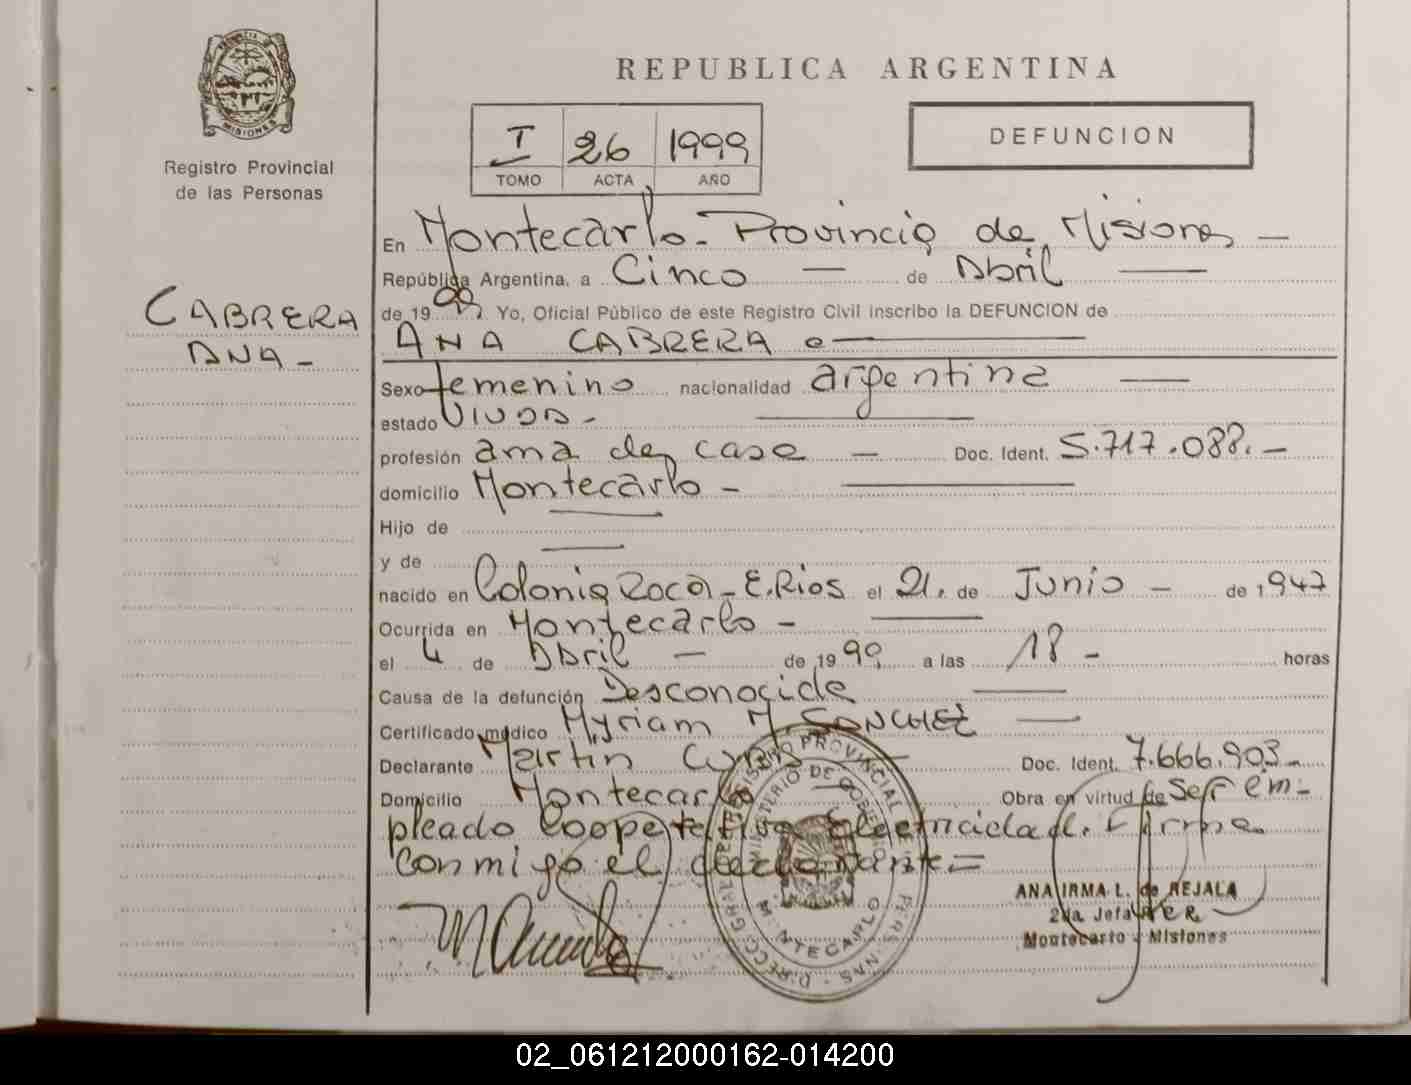 PROVINCIA DE
MISIONES
Registro Provincial
de las Personas
CABRERA
ANA -
REPUBLICA ARGENTINA
I 26 1999
TOMO ACTA AÑO
DEFUNCION
En Montecarlo - Provincia de Misiones -
República Argentina, a Cinco — de Abril —
de 1999 Yo, Oficial Público de este Registro Civil inscribo la DEFUNCION de
ANA CABRERA
Sexo femenino nacionalidad argentina —
estado VIUDA -
profesión ama de casa — Doc. Ident. 5.717.088. -
domicilio Montecarlo -
Hijo de
y de —
nacido en Colonia Roca - E. Rios el 21. de Junio - de 1947
Ocurrida en Montecarlo -
el 4 de Abril — de 1999 a las 18 - horas
Causa de la defunción Desconocida —
Certificado médico Myriam M SANCHEZ —
Declarante Martin Doc. Ident. 7.666.903 -
Domicilio Montecarlo Obra en virtud de ser em-
pleado Cooperativa Electricidad. Firma
conmigo el declarante =
REGISTRO PROVINCIAL DE LAS PERSONAS - DIRECC. GRAL.
MINISTERIO DE GOBIERNO
MONTECARLO
ANA IRMA L. de REJALA
2da. Jefa R.P.
Montecarlo - Misiones
02_061212000162-014200